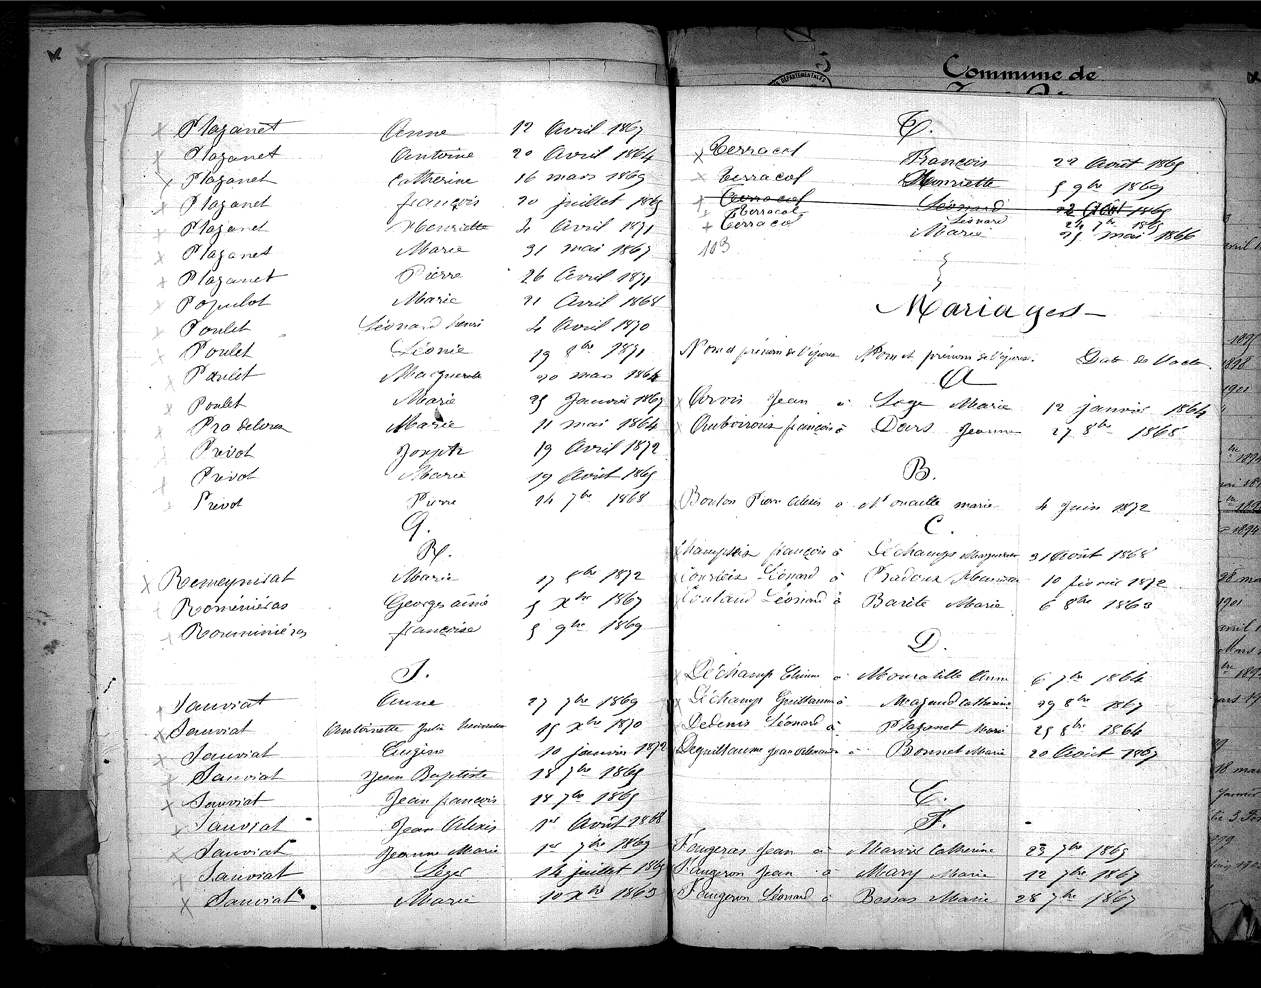 Plazanet Anne 12 Avril 1867
Plazanet Antoine 20 Avril 1864
Plazanet Catherine 16 mars 1869
Plazanet françois 20 juillet 1865
Plazanet Henriette 4 Avril 1871
Plazanet Marie 31 mai 1867
Plazanet Pierre 26 Avril 1871
Marie 21 Avril 1868
Poulet Léonard henri 4 Avril 1870
Poulet Léonie 19 8bre 1871
Poulet Marguerite 20 mars 1864
Poulet Marie 25 Janvier 1867
Marie 11 mai 1864
Prévot Joseph 19 Avril 1872
Prévot Marie 19 Août 1865
Prévot Pierre 14 7bre 1868
Q.
R.
Marie 17 8bre 1872
Roméniéras Georges aimé 5 Xbre 1867
Rouminiéras françoise 5 9bre 1869
S.
Sauviat Anne 27 7bre 1869
Sauviat Antoinette Julie 15 Xbre 1870
Sauviat Eugène 10 janvier 1872
Sauviat Jean Baptiste 18 7bre 1865
Sauviat Jean françois 18 7bre 1865
Sauviat Jean Alexis 1er Août 1868
Sauviat Jeanne Marie 1er 7bre 1869
Sauviat Léger 14 juillet 1865
Sauviat Marie 10 Xbre 1863
Commune de
T.
Terracol François 22 Août 1865
Terracol Henriette 5 9bre 1869
Terracol Léonard 22 Août 1865
Terracol Léonard 24 7bre 1865
Terracol Marie 25 mai 1866
103
Mariages
Nom et prénom de l'époux Nom et prénom de l'épouse. Date de l'acte.
A
Arvis Jean à Loge Marie 12 janvier 1864
françois à Dars Jeanne 27 8bre 1868
B.
Bouton Pierre Alexis à marie 4 Juin 1872
C.
françois à Léchamps Marguerite 31 Août 1868
Léonard à Pradoux Henriette 10 février 1872
Léonard à Barète Marie 6 8bre 1863
D.
Déchamp à Anne 6 7bre 1864
Déchamp Guillaume à Mazaud Catherine 29 8bre 1867
Dedenis Léonard à Plazanet Marie 25 8bre 1864
Deguillaume Jean à Bonnet Marie 20 Août 1867
E.
F.
Faugeras Jean à Catherine 23 7bre 1865
Faugeron Jean à Mary Marie 12 7bre 1867
Faugeron Léonard à Bassas Marie 28 7bre 1867